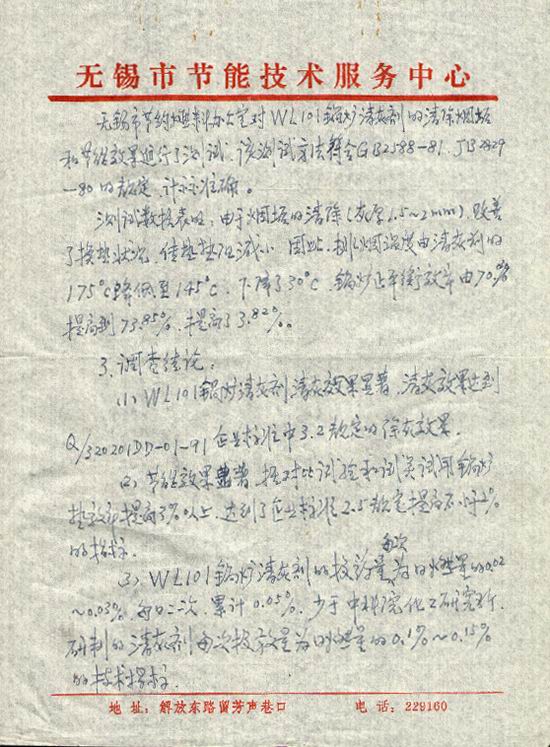 无锡市节能技术服务中心
无锡市节约燃料办公室对WL101锅炉清灰剂的清除烟垢
和节能效果进行了测试。该测试方法符合GB2588-81、JB2829
-80的规定,计标准确。
测试数据表明,由于烟垢的清除(灰厚1.5~2mm),改善
了换热状况,传热热阻减小。因此,排烟温度由清灰剂的
175°C降低至145°C,下降了30°C,锅炉正平衡效率由70.
提高到73.85%,提高了3.82%。
3.调查结论:
(1)WL101锅炉清灰剂清灰效果显著,清灰效果达到
Q/320201DD-01-91企业标准中3.2规定的除灰效果。
(2)节能效果显著,据对比试验和测试,试用锅炉
热效率提高3%以上,达到了企业标准2.5规定提高不小于2%
的指标。
每次
(3)WL101锅炉清灰剂的投药量为日燃煤量的0.02
~0.03%,每日二次,累计0.05%,少于中科院化工研究所
研制的清灰剂每次投放量为日燃煤量的0.1%~0.15%
的技术指标。
地 址:解放东路留芳声巷口 电 话:229160